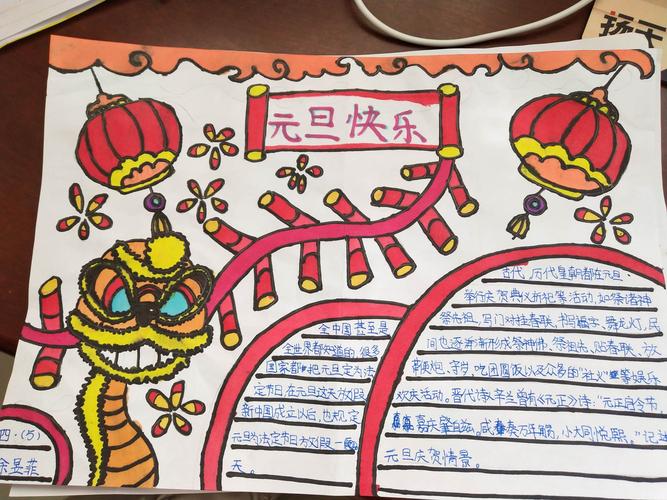 元旦快乐
古代,历代皇朝都在元旦
举行庆贺典仪祈祀等活动,如祭诸神
祭先祖,写门对挂春联,书写福字、舞龙灯,民
间也逐渐形成祭神佛、祭祖先、贴春联、放
鞭炮、守岁、吃团圆饭以及众多的"社火"等娱乐
欢庆活动。晋代诗人辛兰曾有《元正》诗:"元正启令节
嘉庆肇自兹。咸奏万年觞,小大同悦熙。"记述
元旦庆贺情景。
全中国甚至是
全世界都知道的 很多
国家都把元旦定为法
定节日 在元旦这天放假
新中国成立以后,也规定
元旦为法定节日放假一
天。
四·(5)
余昱菲